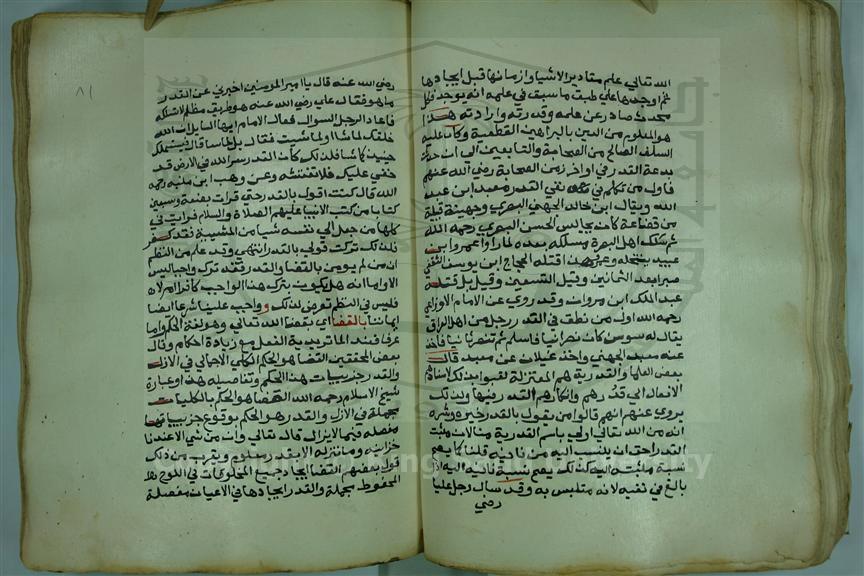 الله تعالي علم مقادير الاشيا وازمانها قبل ايجادها
ثم اوجدها علي طبق ما سبق في علمه انه يوجد فكل
محدث صادر عن علمه وقدرته وارادته هذا
هو المعلوم من الدين بالبراهين القطعية وكان عليه
السلف الصالح من الصحابة والتابعين الي ان حدثت
بدعة القدر في اواخر زمن الصحابة رضي الله عنهم
فاول من تكلم في نفي القدر معبد ابن عبد
الله ويقال ابن خالد الجهني البصري وجهينة قبيلة
من قضاعة كان يجالس الحسن البصري رحمه الله
ثم سلك اهل البصرة مسلكه بعده لما راوا عمروا بن
عبيد ينتحله قتله الحجاج ابن يوسف الثقفي
صبرا بعد الثمانين وقيل التسعين وقيل بل قتله
عبد الملك ابن مروان وقد روي عن الامام الاوزاعي
رحمه الله اول من نطق في القدر رجل من اهل العراق
يقال له سوسن كان نصرانيا فاسلم ثم تنصر ثانيا فاخذ
عنه معبد الجهني واخذ غيلان عن معبد قال
بعض العلما والقدرية هم المعتزلة لقبوا بذلك لاسنادهم
الافعال الي قدرهم وانكارهم القدر فيها ولذلك
يروي عنهم انهم قالوا من يقول بالقدر خيره وشره
انه من الله تعالي اولي باسم القدرية منا لان مثبت
القدر احق ان ينسب اليه من نافيه قلنا كما يصح
نسبة مثبت اليه كذلك يصح نسبة نافيه اليه اذا
بالغ في نفيه لانه متلبس به وقد سال رجل عليا
رضي
٨١
رضي الله عنه قال يا امير المومنين اخبرني عن القدر
ما هو فقال علي رضي الله عنه هو طريق مظلم لا تسلكه
فاعاد الرجل السوال فقال الامام ايها السايل ان الله
خلقك لما شا او لما شيت فقال بل لما شا قال
حينيذ كما شا فلذلك كان القدر سر الله في الارض قد
خفي عليك فلا تفتشه وعن وهب ابن منبه رحمه
الله قال كنت اقول بالقدر حتي قرات بضعة وسبعين
كتابا من كتب الانبيا عليهم الصلاة والسلام فرات في
كلها من جعل الي نفسه شيا من المشيية فقد كفر
فلذلك تركت قولي بالقدر انتهي وقد علم من النظم
ان من لم يومن بالقضا والقدر فقد ترك واجبا ليس
الا واما انه هل يكون بترك هذا الواجب كافرا ام لا
فليس في النظم تعرض لذلك و واجب علينا شرعا ايضا
ايماننا بالقضا اي بقضا الله تعالي وهو لغة الحكم واما
عرفا فعند الماتريدية الفعل مع زيادة احكام وقال
بعض المحققين القضا هو الحكم الكلي الاجمالي في الازل
والقدر جزييات هذا الحكم وتفاصيله هذا وعبارة
شيخ الاسلام رحمه الله القضا هو الحكم بالكليات
مجملة في الازل والقدر هو الحكم بوقوع جزيياتها
مفصلة فيما لايزال قال تعالي وان من شي الا عندنا
خزاينه وما ننزله الا بقدر معلوم ويقرب من ذلك
قول بعضهم القضا ايجاد جميع المخلوقات في اللوح
المحفوظ مجملة والقدر ايجادها في الاعيان مفصلة